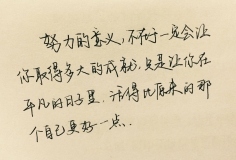 努力的意义,不在于一定会让
你取得多大的成就,只是让你在
平凡的日子里,活得比原来的那
个自己更好一点.